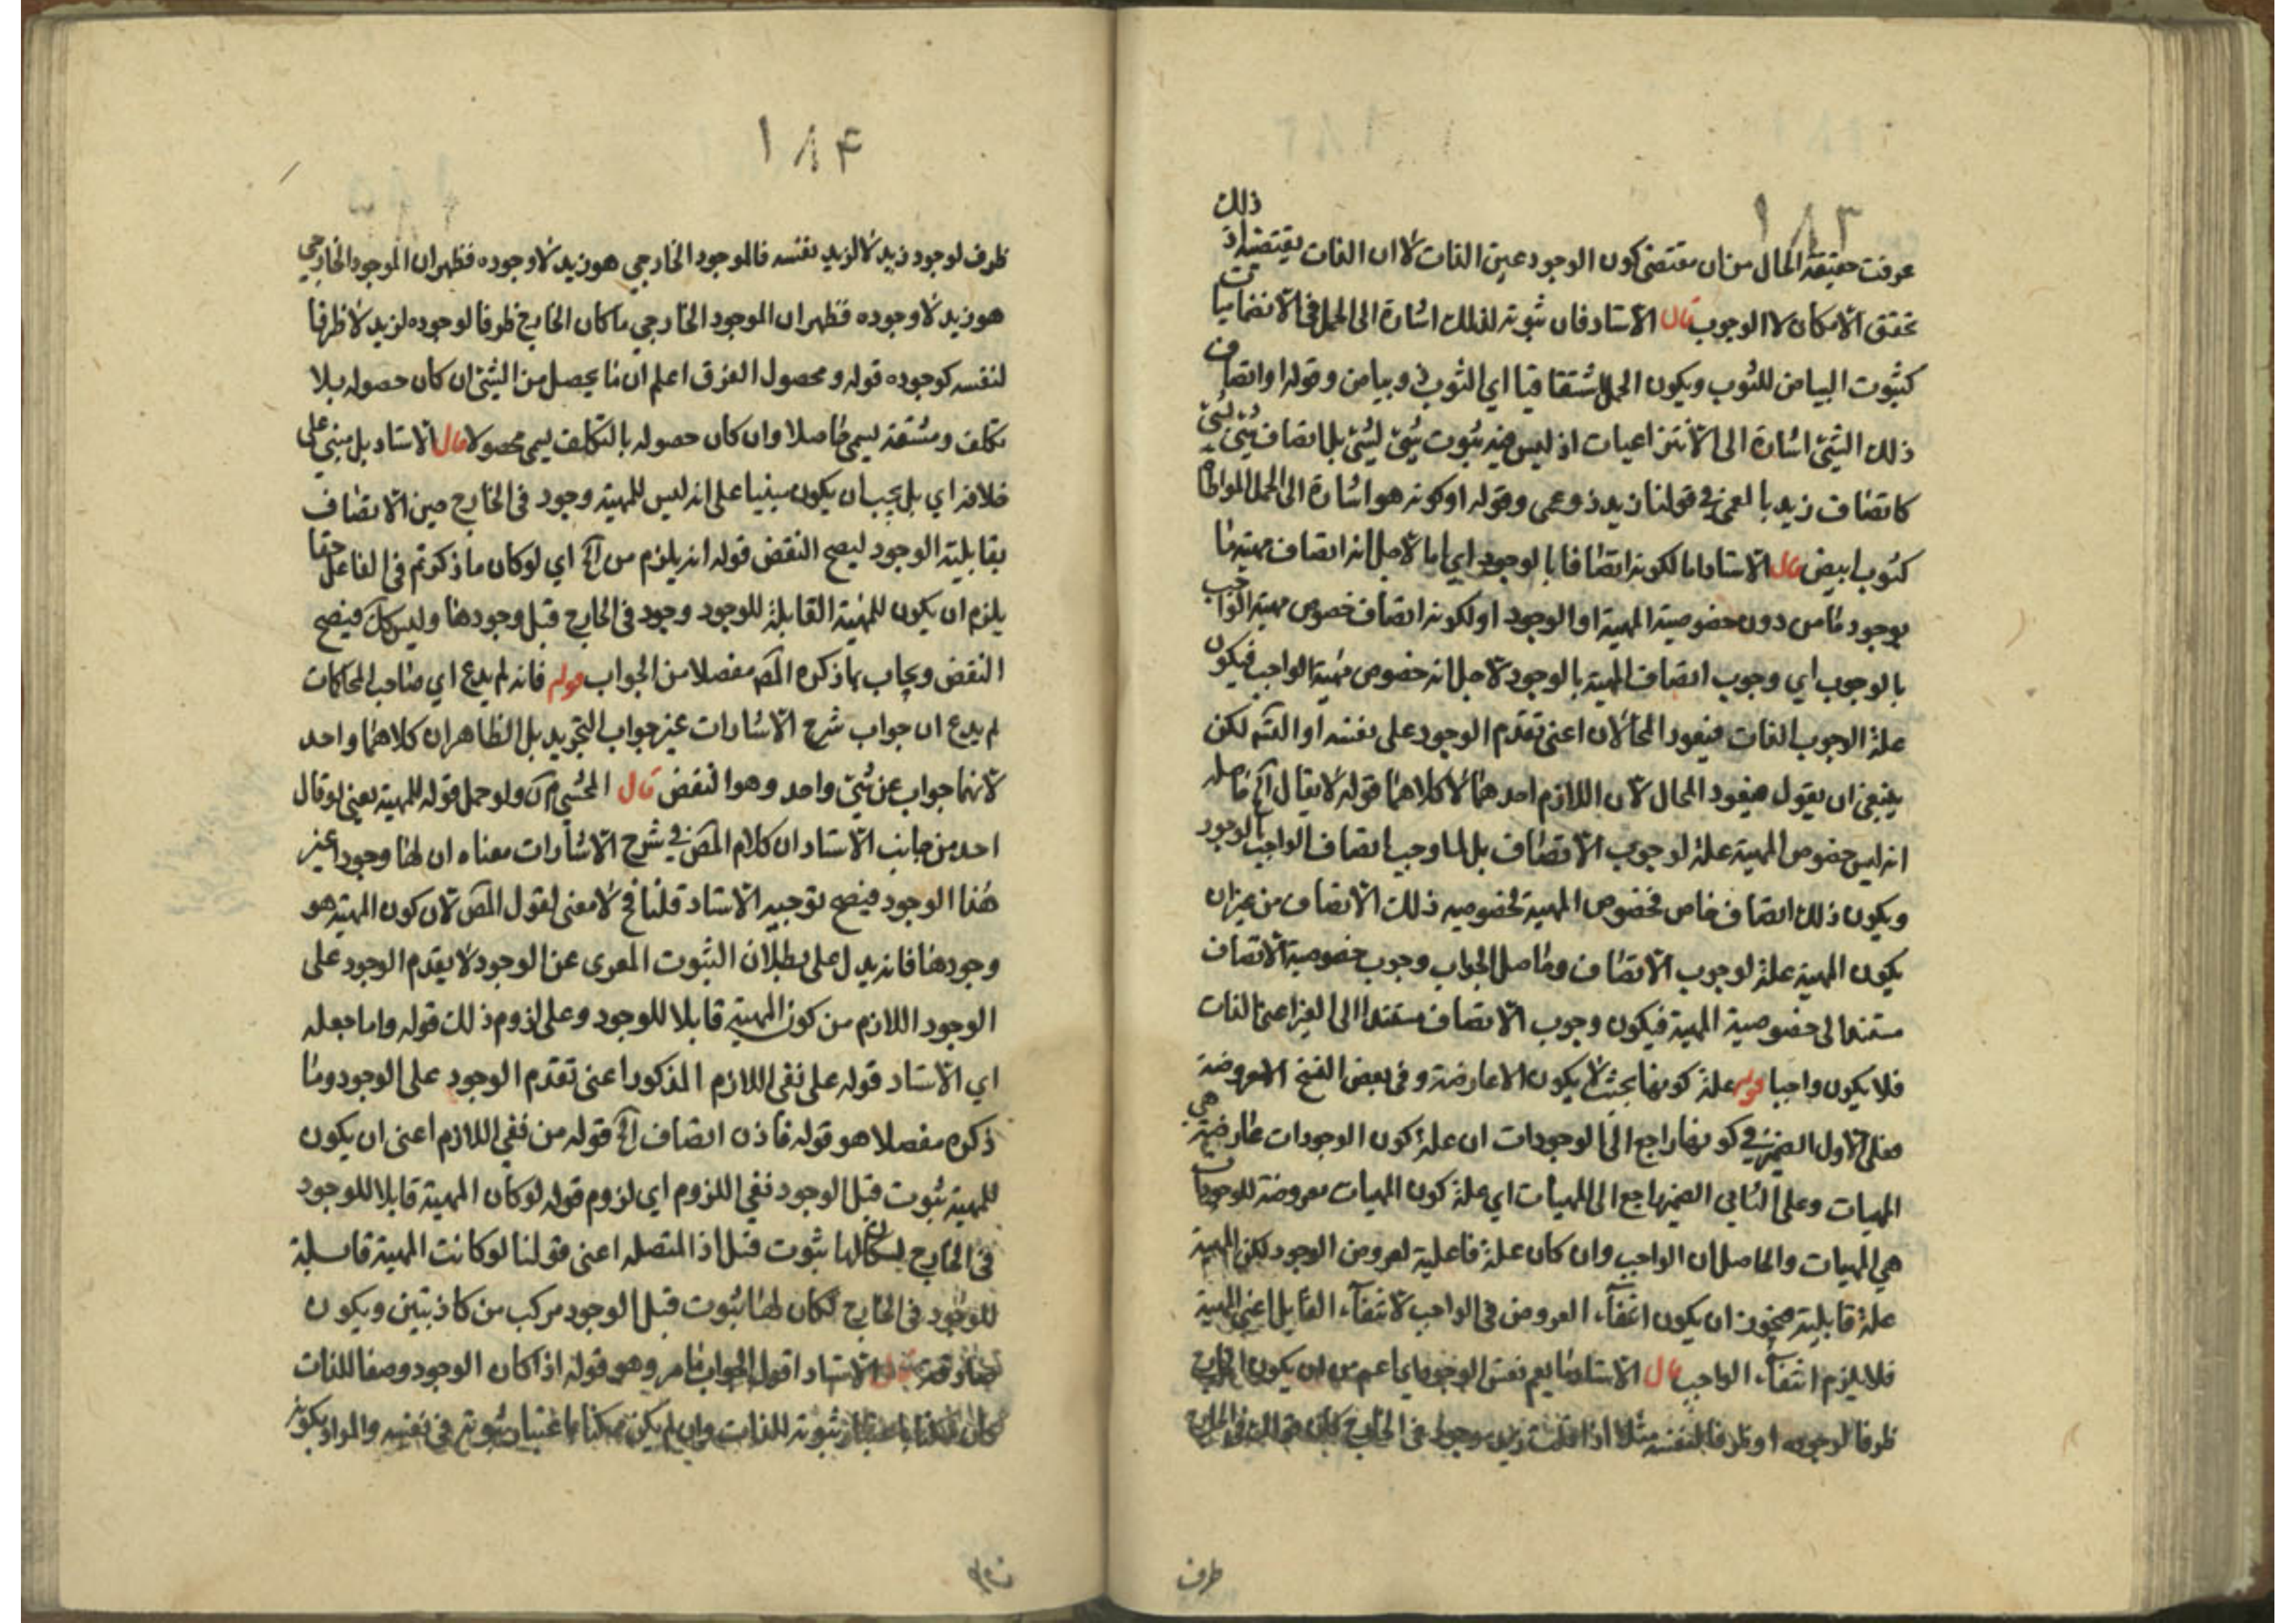 ١٨٣
عرفت حقيقة الحال من ان مقتضى كون الوجود عين الذات لا ان الذات يقتضيه اذ ذلك
تحقق الامكان لا الوجوب قال الاستاد فان ثبوته لذلك اشارة الى الحمل في الانضماميات
كثبوت البياض للثوب ويكون الحمل اشتقاقيا اي الثوب ذو بياض وقوله او اتصاف
ذلك الشئ اشارة الى الانتزاعيات اذ ليس فيه ثبوت شئ لشئ بل اتصاف شئ بشئ
كاتصاف زيد بالعمى في قولنا زيد ذو عمى وقوله او كونه هو اشارة الى الحمل المواطاة
كثوب ابيض قال الاستاد اما لكونه اتصافا بالوجود اي اما لاجل انه اتصاف مهية ما
بوجود ما من دون خصوصية المهية او الوجود او لكونه اتصاف خصوص مهية الواجب
بالوجوب اي وجوب اتصاف المهية بالوجود لاجل انه خصوص مهية الواجب فيكون
علة الوجوب الذات فيعود المحالان اعنى تقدم الوجود على نفسه او التسم لكن
ينبغي ان يقول فيعود المحال لان اللازم احدهما لا كلاهما قوله لا يقال آه حاصله
انه ليس خصوص المهية علة لوجوب الاتصاف بل لما وجب اتصاف الواجب بالوجود
ويكون ذلك اتصاف خاص فخصوص المهية لخصوصيه ذلك الاتصاف من غير ان
يكون المهية علة لوجوب الاتصاف وحاصل الجواب وجوب خصوصية الاتصاف
مستندا لى خصوصية المهية فيكون وجوب الاتصاف مستندا الى الغير اعنى الذات
فلا يكون واجبا قوله علة كونها بحيث لا يكون الا عارضة وفى بعض النسخ الا معروضة
فعلى الاول الضمير في كونها راجع الى الوجودات ان علة كون الوجودات عارضة هي
المهيات وعلى الثاني الضمير راجع الى المهيات اي علة كون المهيات معروضة للوجودات
هي المهيات والحاصل ان الواجب وان كان علة فاعلية لعروض الوجود لكن المهية
علة قابلية فيجوز ان يكون انتفاء العروض فى الواجب لانتفاء القابل اعنى المهية
فلا يلزم انتفاء الواجب قال الاستاد ما يعم نفس الوجود اي اعم من ان يكون الخارج
ظرفا لوجوده او ظرفا لنفسه مثلا اذا قلت زيد موجود فى الخارج كان الخارج
ظرف
١٨۴
ظرف لوجود زيد لا لزيد نفسه فالموجود الخارجي هو زيد لا وجوده فظهر ان الموجود الخارجي
هو زيد لا وجوده فظهر ان الموجود الخارجي ما كان الخارج ظرفا لوجوده لزيد لا ظرفا
لنفسه كوجوده قوله ومحصول الفرق اعلم ان ما يحصل من الشئ ان كان حصوله بلا
تكلف ومشقة يسمى حاصلا وان كان حصوله بالتكلف يسمى محصولا قال الاستاد بل مبني على
خلافه اي بل يجب ان يكون مبنيا على انه ليس للمهية وجود فى الخارج حين الاتصاف
بقابلية الوجود ليصح النقض قوله انه يلزم من آه اي لو كان ما ذكرتم فى الفاعل حقا
يلزم ان يكون للمهية القابلة للوجود وجود فى الخارج قبل وجودها وليس كك فيصح
النقض ويجاب بما ذكره المص مفصلا من الجواب قوله فانه لم يدع اي صاحب المحاكمات
لم يدع ان جواب شرح الاشارات غير جواب التجريد بل الظاهر ان كلاهما واحد
لانهما جواب عن شئ واحد وهو النقض قال المحشي ره ولو حمل قوله للمهية يعنى لو قال
احد من جانب الاستاد ان كلام المص في شرح الاشارات معناه ان لها وجودا غير
هذا الوجود فيصح توجيه الاستاد قلنا فح لا معنى لقول المص لان كون المهية هو
وجودها فانه يدل على بطلان الثبوت المعرى عن الوجود لا يقدم الوجود على
الوجود اللازم من كون المهية قابلا للوجود وعلى لزوم ذلك قوله واما جعله
اي الاستاد قوله على نفى اللازم المذكور اعنى تقدم الوجود على الوجود وما
ذكره مفصلا هو قوله فاذن اتصاف آه قوله من نفى اللازم اعنى ان يكون
للمهية ثبوت قبل الوجود نفى اللزوم اي لزوم قوله لو كان المهية قابلا للوجود
فى الخارج لكان لها ثبوت قبل اذ المتصله اعنى قولنا لو كانت المهية قابلة
للوجود فى الخارج لكان لها ثبوت قبل الوجود مركب من كاذبتين ويكون
صادقة قال الاستاد اقول الجواب ما مر وهو قوله اذا كان الوجود وصفا للذات
كان ممكنا باعتبار ثبوته للذات وان لم يكن ممكنا باعتبار ثبوته فى نفسه والمراد بكونه